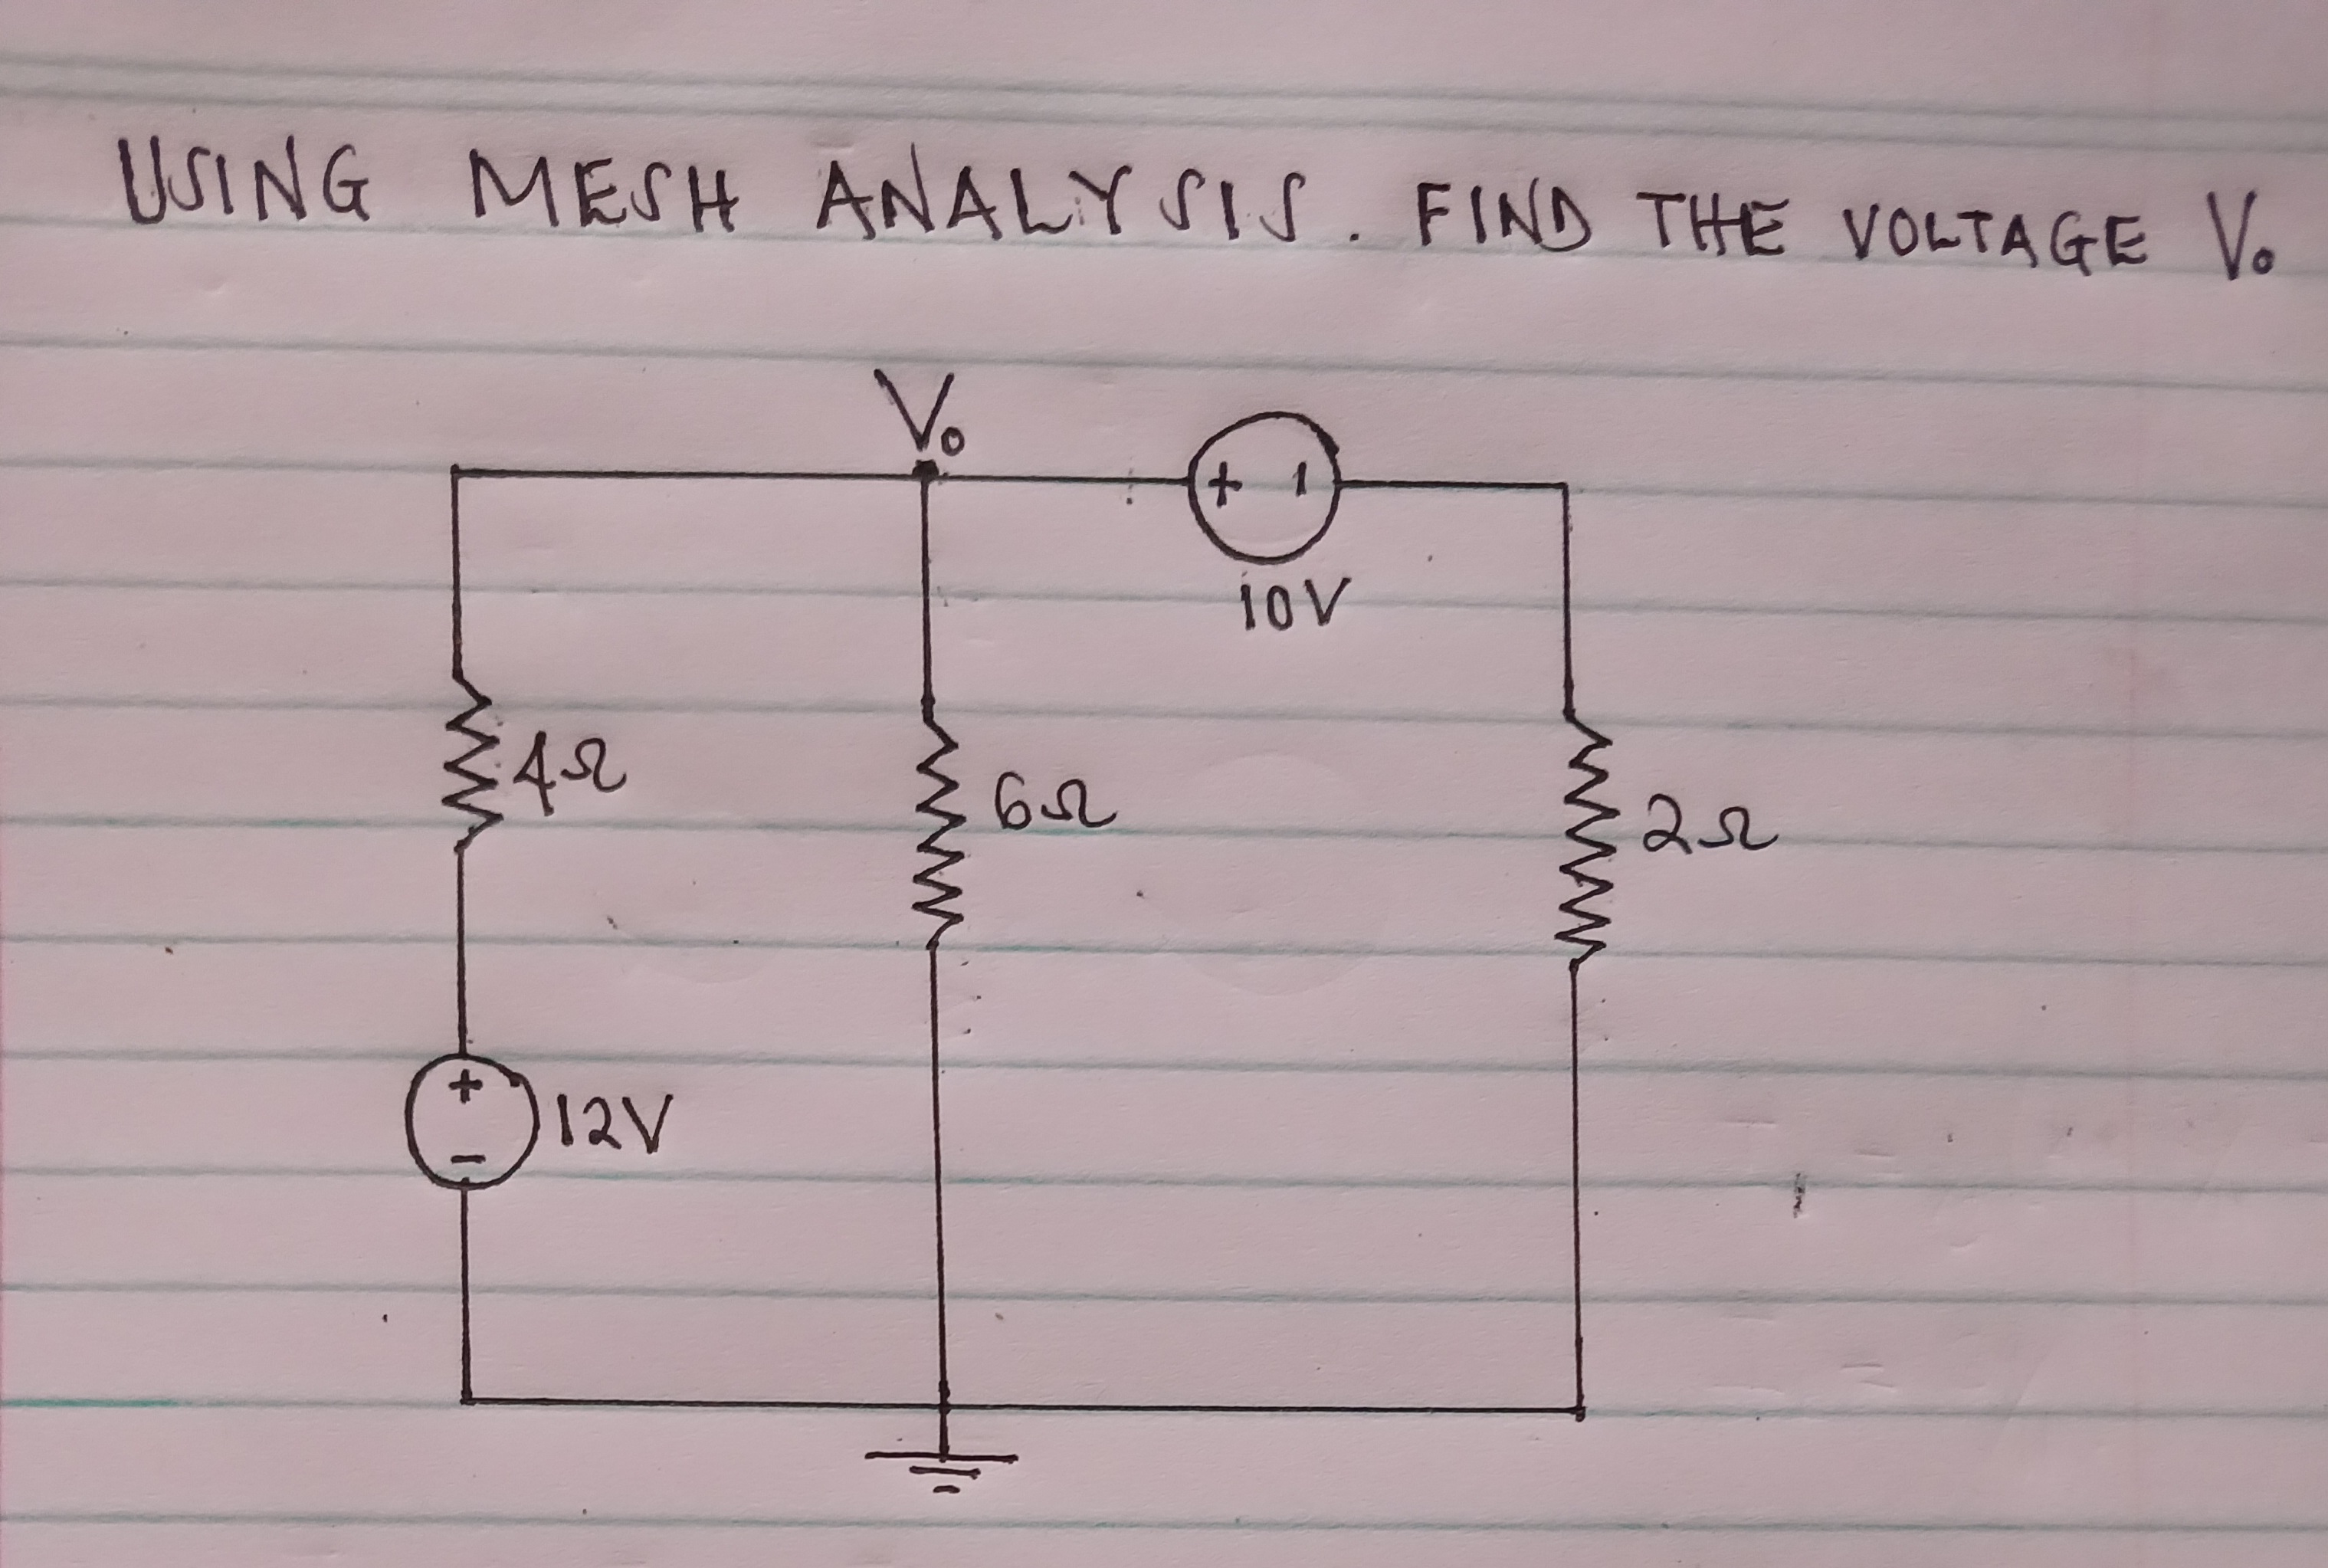 USING MESH ANALYSIS. FIND THE VOLTAGE V₀
V₀
+ -
10V
4Ω
6Ω
2Ω
+
12V
-